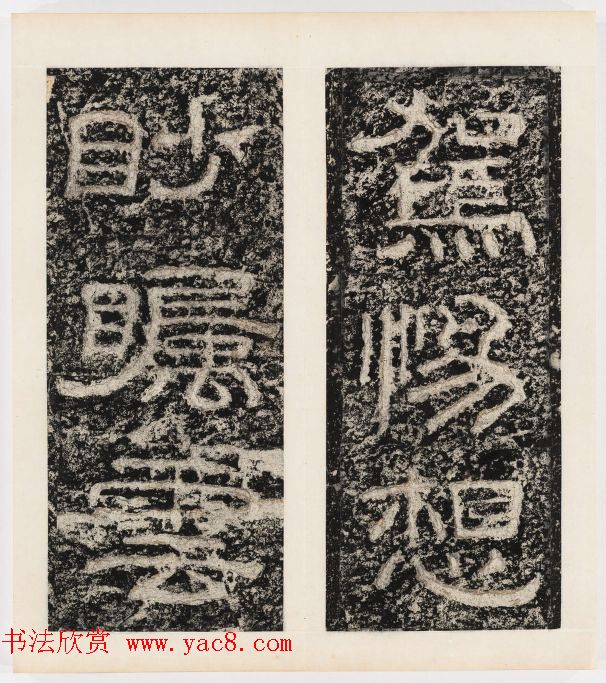 駕惕想
眇雲
书法欣赏 www.yac8.com